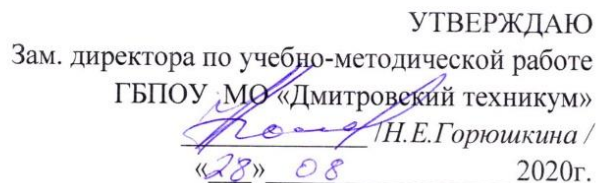 УТВЕРЖДАЮ
Зам. директора по учебно-методической работе
ГБПОУ МО «Дмитровский техникум»
/Н.Е.Горюшкина /
«28» 08 2020г.